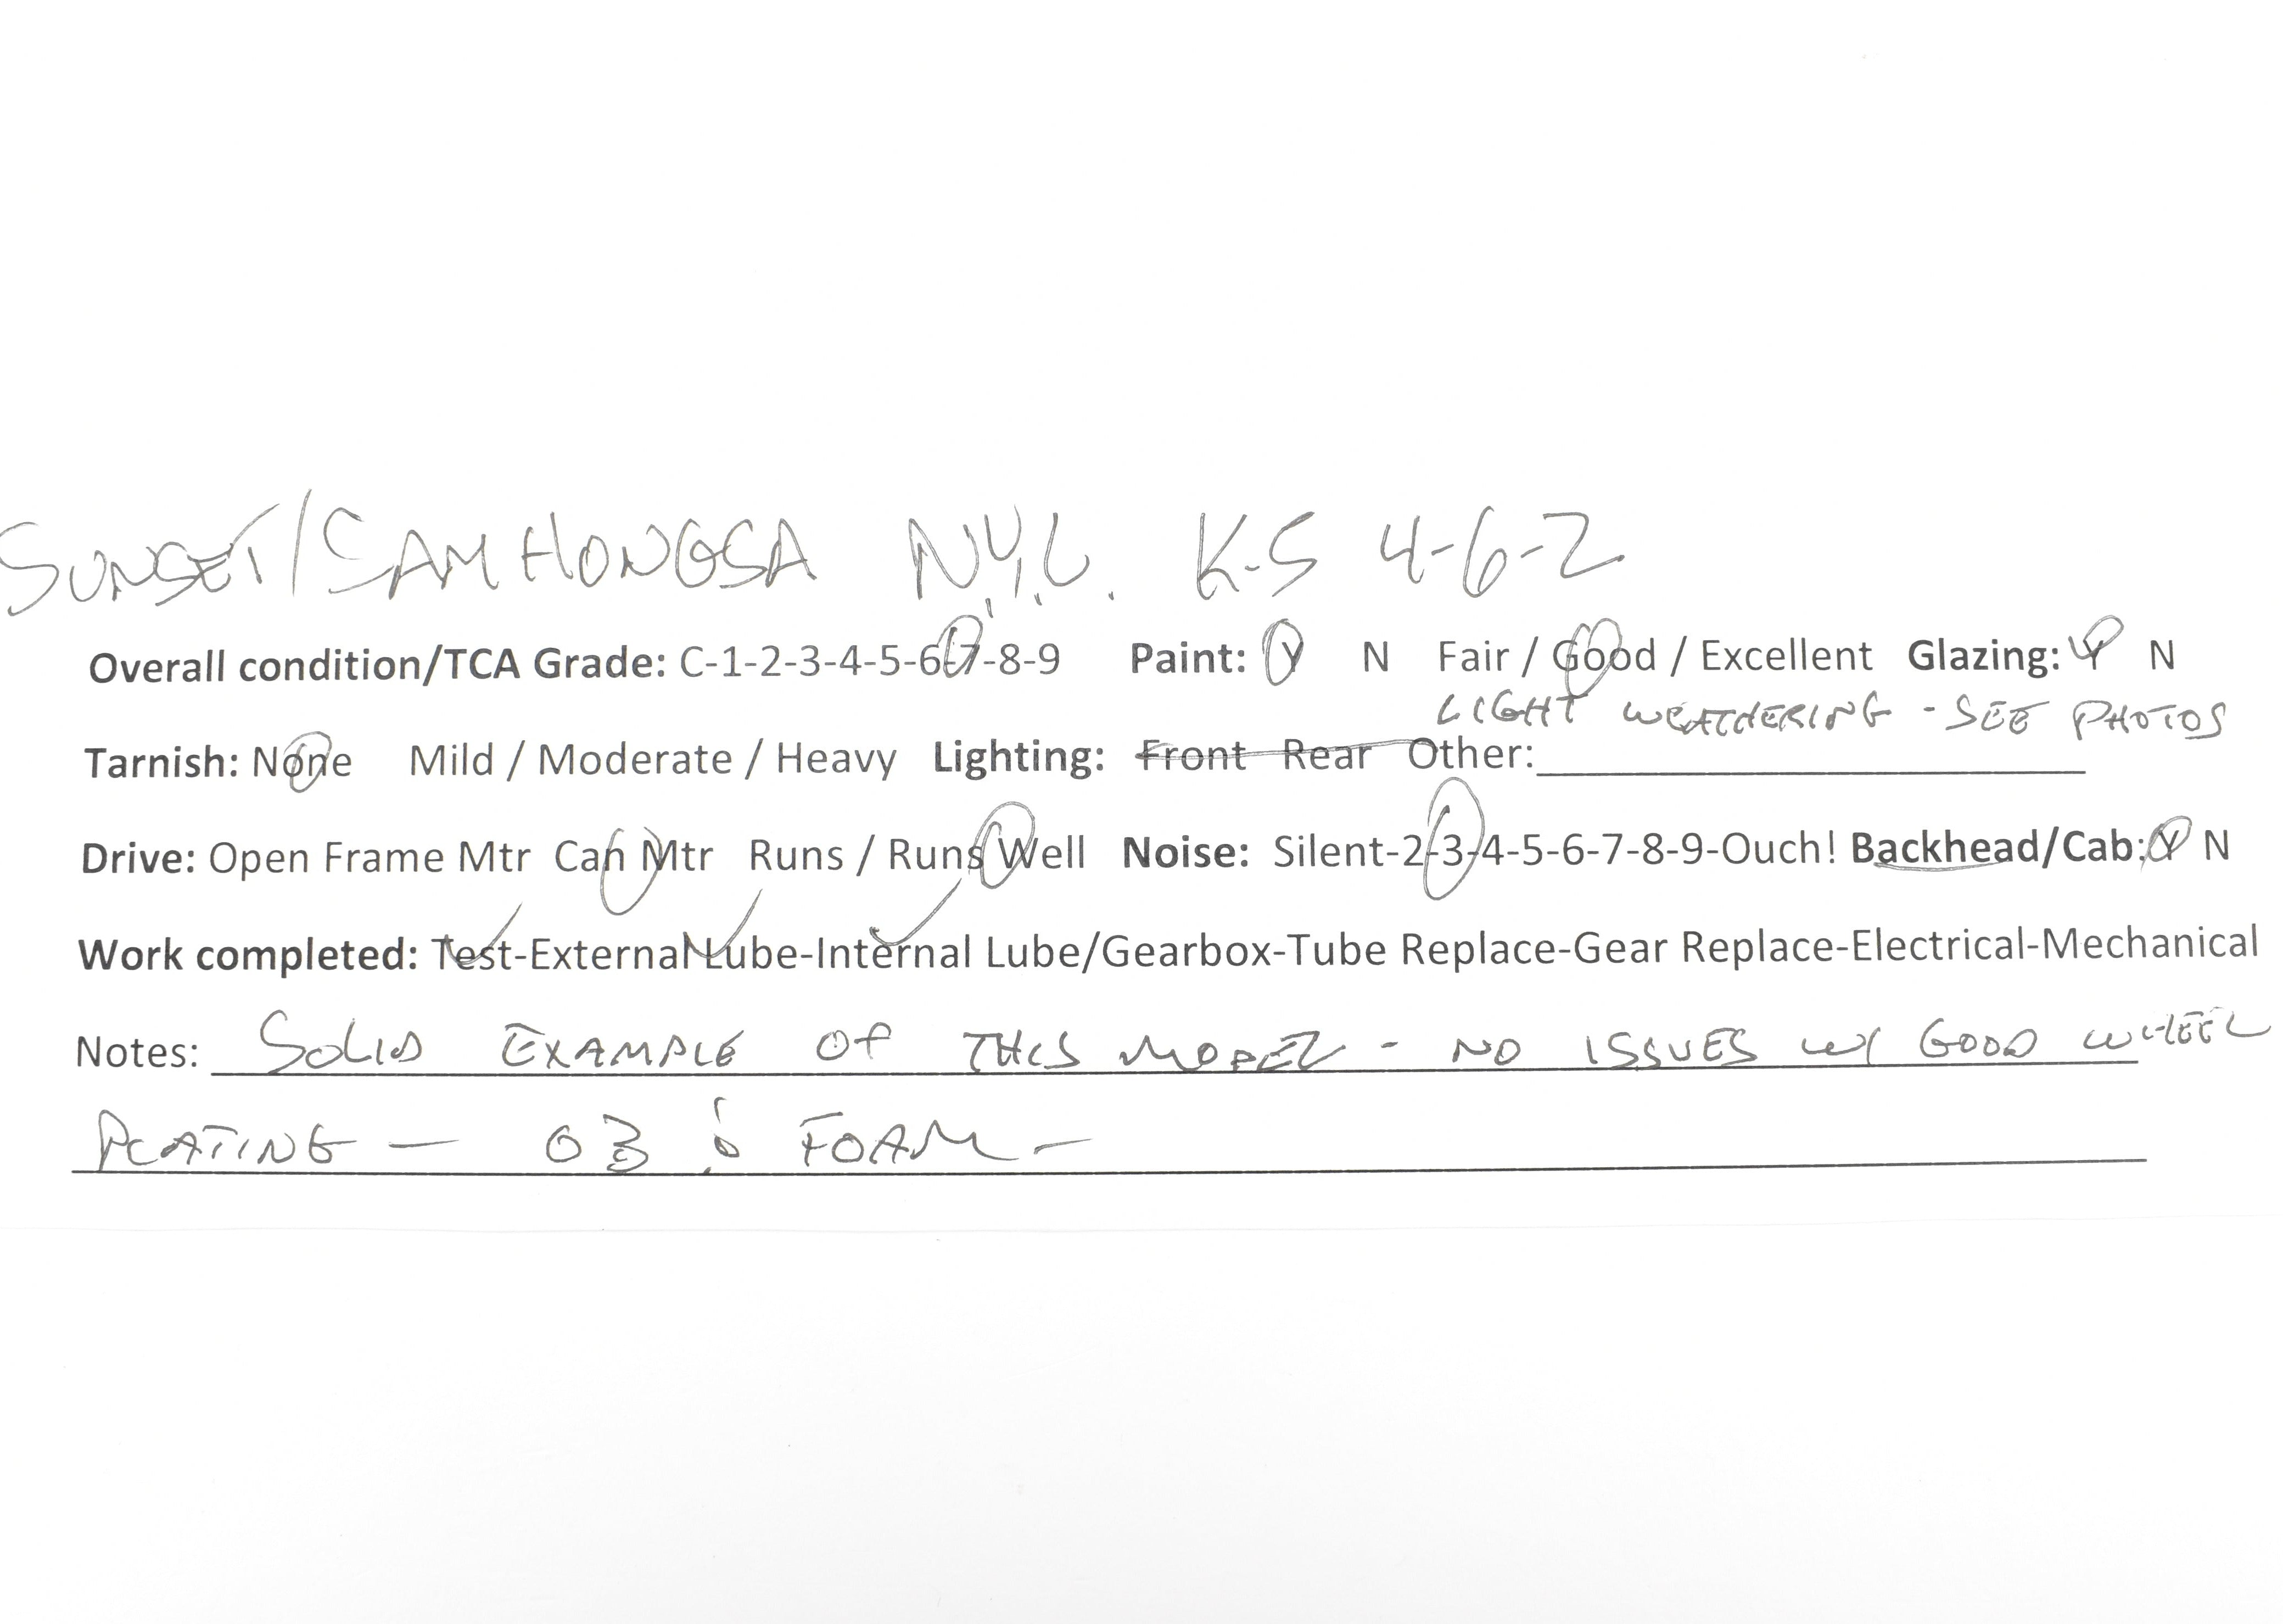 SUNSET/SAMHONGSA N.Y.C. K-5 4-6-2
Overall condition/TCA Grade: C-1-2-3-4-5-6-7-8-9 Paint: Y N Fair / Good / Excellent Glazing: Y N
LIGHT WEATHERING - SEE PHOTOS
Tarnish: None Mild / Moderate / Heavy Lighting: Front Rear Other:
Drive: Open Frame Mtr Can Mtr Runs / Runs Well Noise: Silent-2-3-4-5-6-7-8-9-Ouch! Backhead/Cab: Y N
Work completed: Test-External Lube-Internal Lube/Gearbox-Tube Replace-Gear Replace-Electrical-Mechanical
Notes: SOLID EXAMPLE OF THIS MODEL - NO ISSUES W/ GOOD WHEEL
PLATING — OB & FOAM —